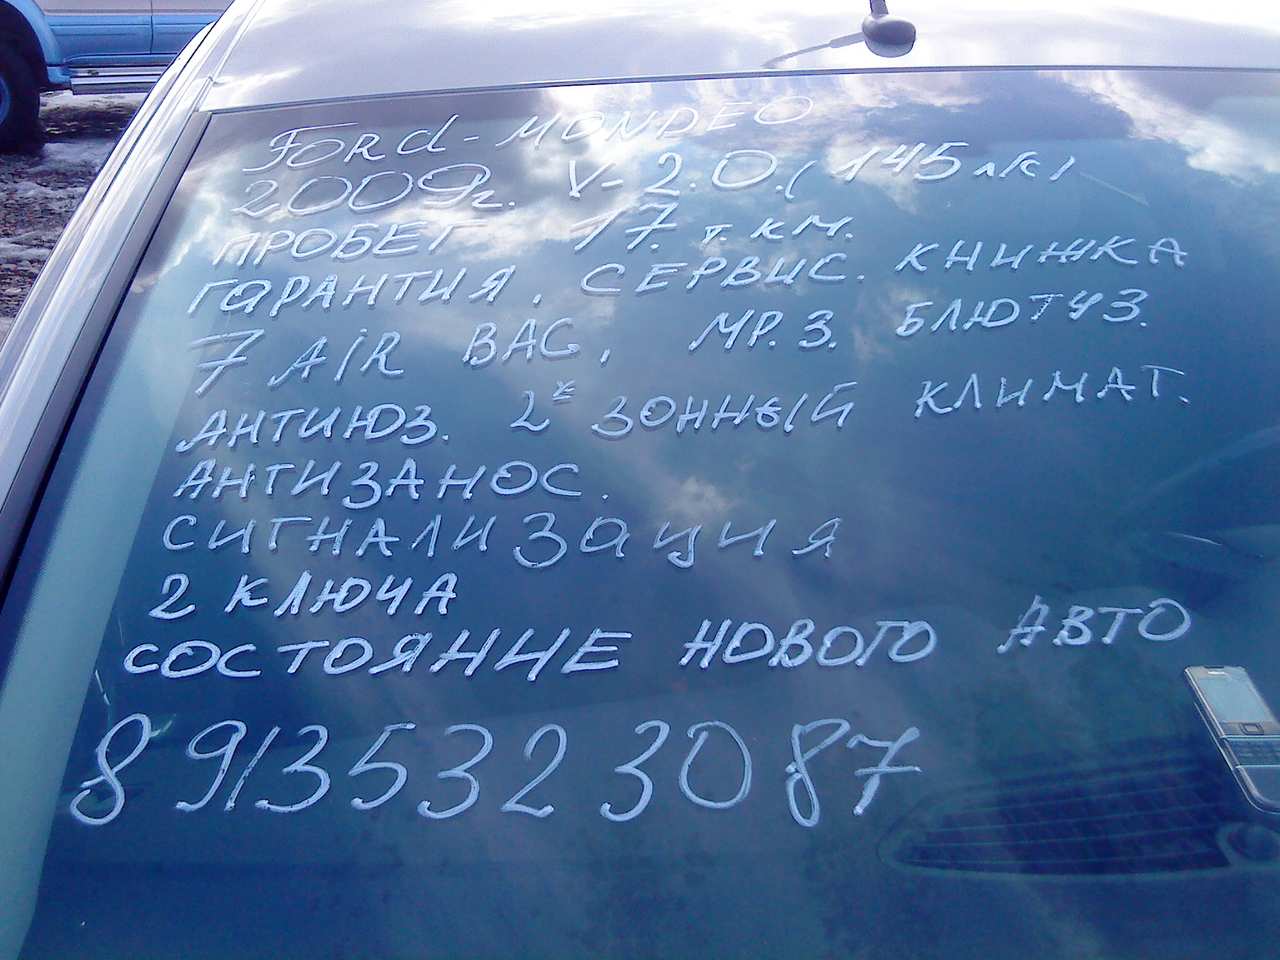 FORd - MONDEO
2009г. V-2.0.(145 л/с)
ПРОБЕГ 17. т. км.
ГАРАНТИЯ. СЕРВИС. КНИЖКА
7 AiR BAG, МР.3. БЛЮТУЗ.
АНТИЮЗ. 2х ЗОННЫЙ КЛИМАТ.
АНТИЗАНОС.
СИГНАЛИЗАЦИЯ
2 КЛЮЧА
СОСТОЯНИЕ НОВОГО АВТО
8 913 532 30 87